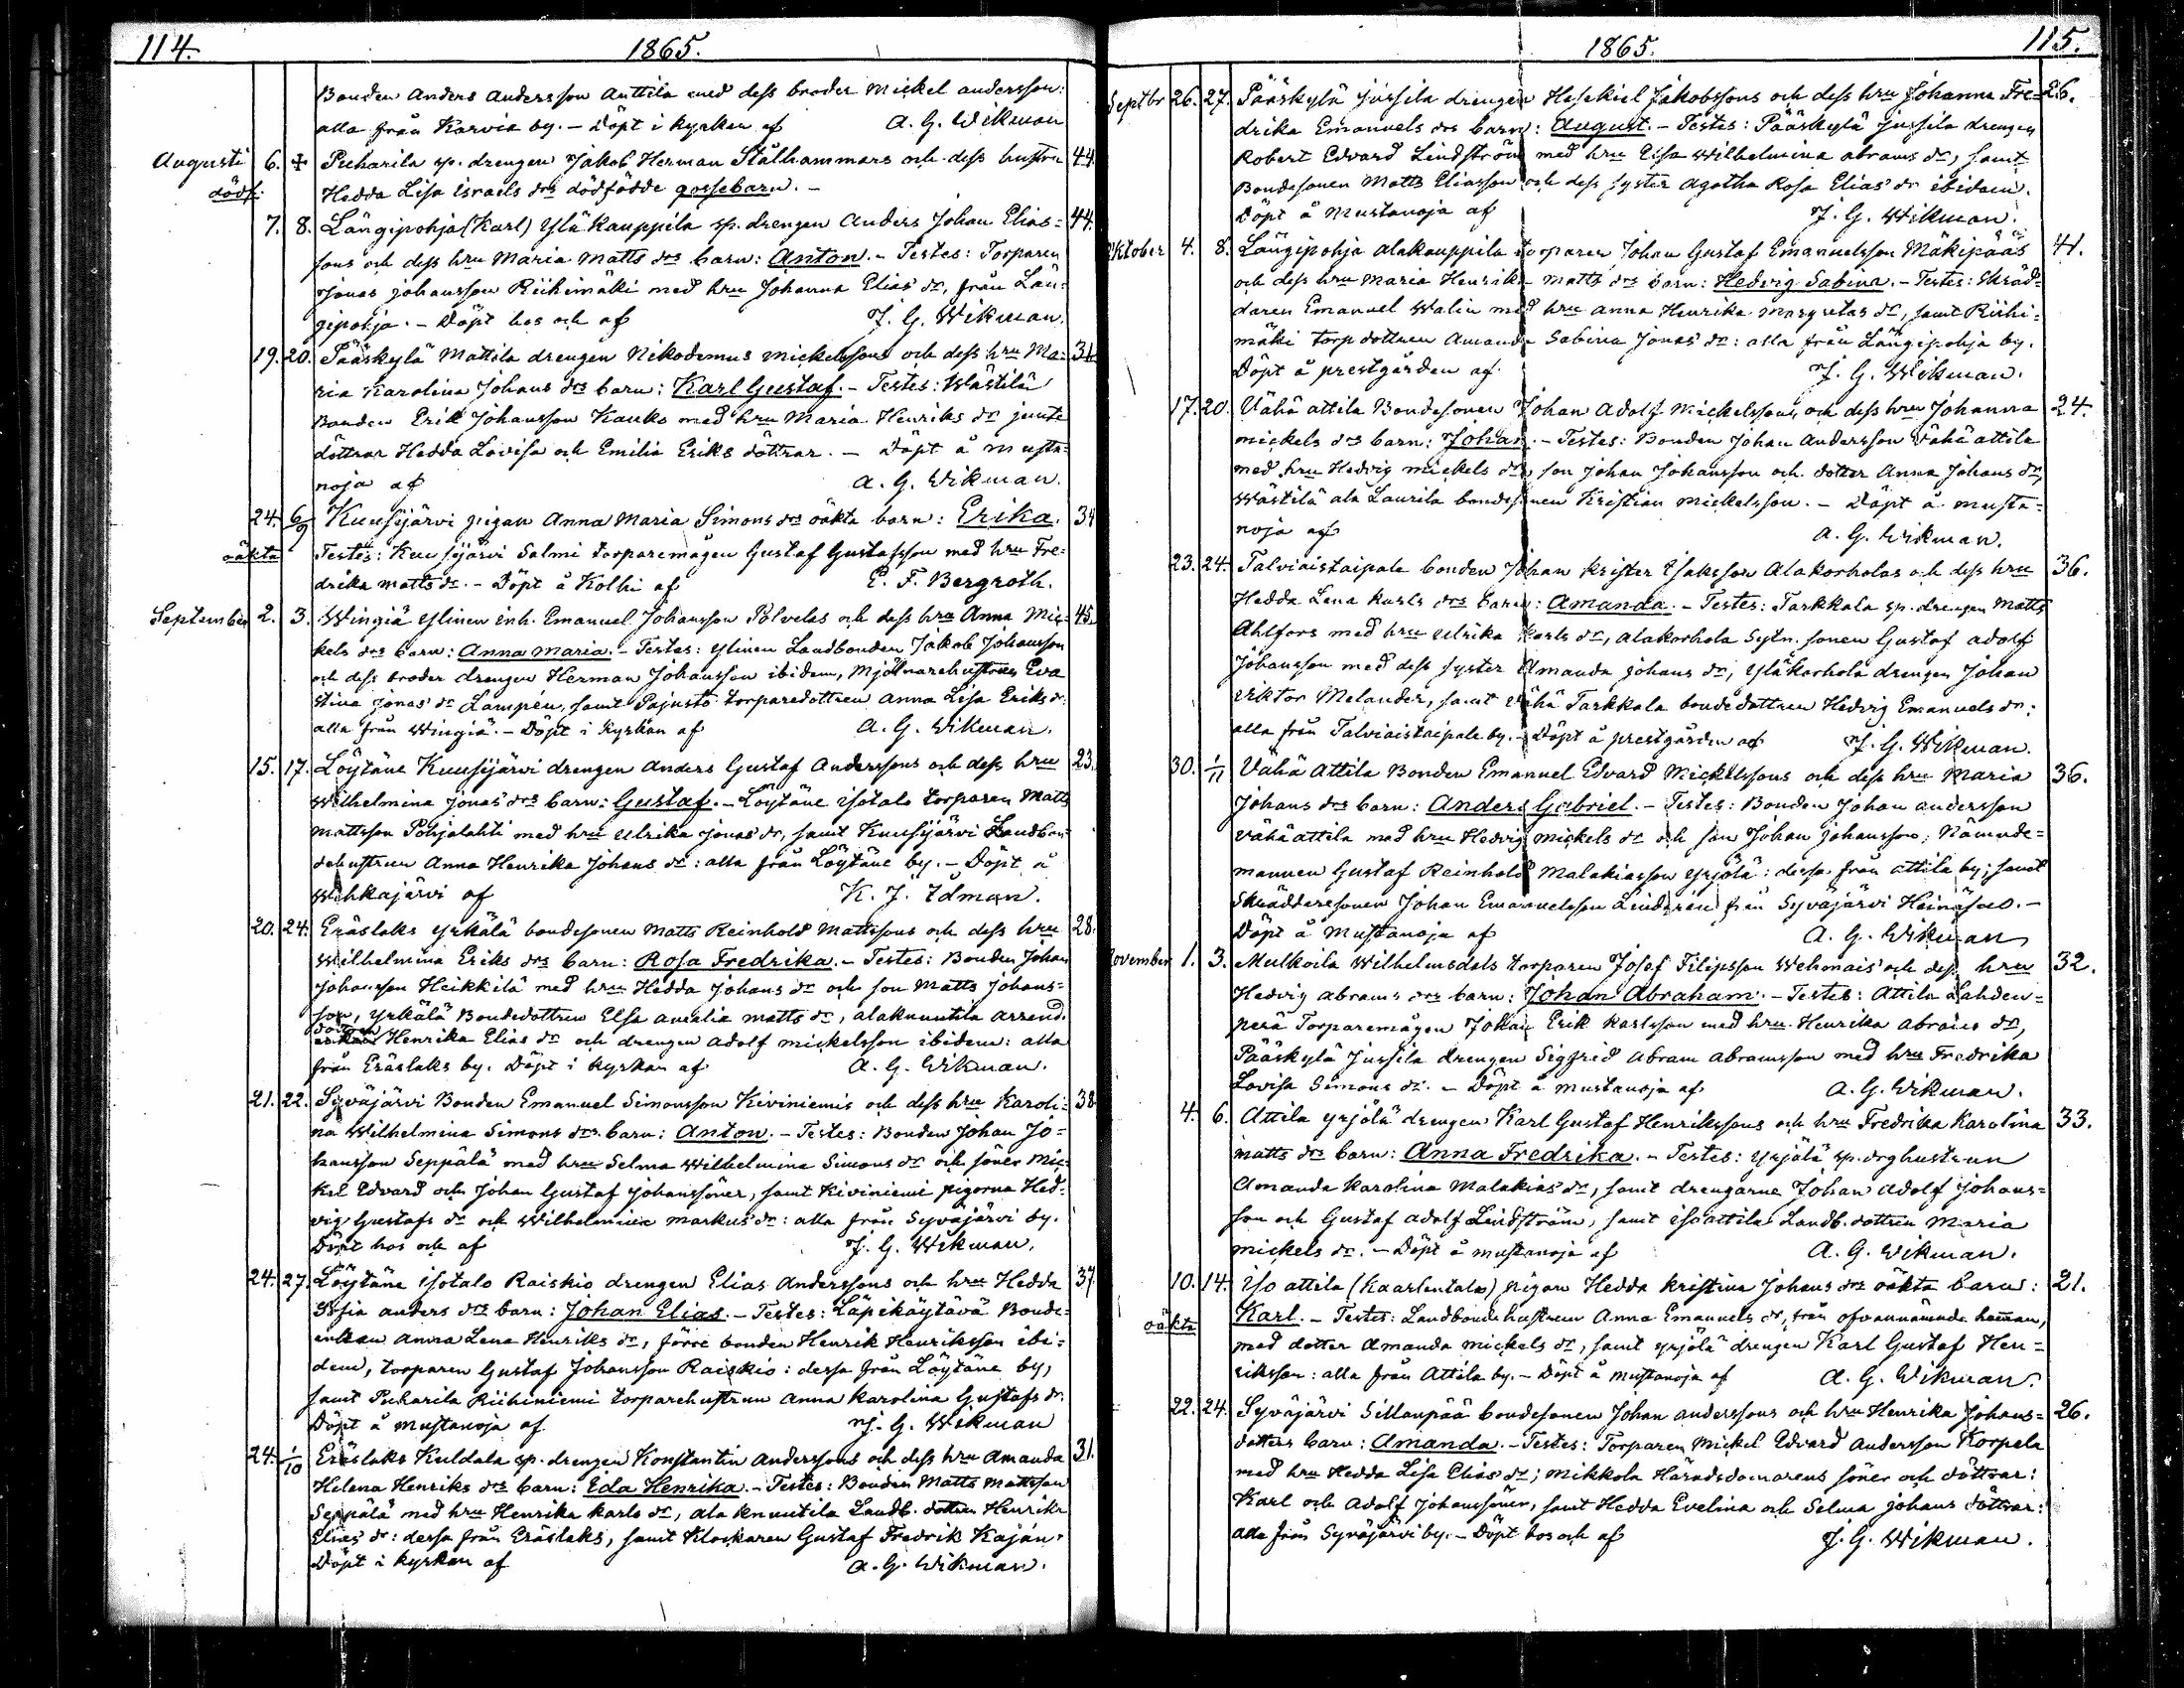 114.
1865.
Bonden Anders Andersson Anttila med dess broder Mickel Andersson:
alla från Karvia by. – Döpt i kyrkan af A. G. Wikman
Augusti 6. Pukarila sp. drengen Jakob Herman Stålhammars och dess hustru 44.
dödf. Hedda Lisa Israels drs dödfödde gossebarn. –
7. 8. Längipohja (Karl) Yläkauppila sp. drengen Anders Johan Elias= 44.
sons och dess hru Maria Matts drs barn: Anton. – Testes: Torparen
Jonas Johansson Riihimäki med hru Johanna Elias dr, från Län=
gipohja. – Döpt hos och af J. G. Wikman.
19. 20. Pääskylä Mattila drengen Nikodemus Mickelssons och dess hru Ma= 34
ria Karolina Johans drs barn: Karl Gustaf. – Testes: Wästilä
Bonden Erik Johansson Kauko med hru Maria Henriks dr jemte
döttrar Hedda Lovisa och Emilia Eriks döttrar. – Döpt å Musta=
noja af A. G. Wikman.
24. 6/9 Kuusijärvi pigan Anna Maria Simons drs oäkta barn: Erika. 34
oäkta Testes: Kuusijärvi Salmi torparemågen Gustaf Gustafsson med hru Fre=
drika Matts dr. – Döpt å Kolhi af E. F. Bergroth.
September 2. 3. Wingiä Ylinen inh. Emanuel Johansson Polvelas och dess hru Anna Mic= 45.
kels drs barn: Anna Maria. – Testes: Ylinen Landbonden Jakob Johansson
och dess broder drengen Herman Johansson ibidem, Mjölnarehustrun Eva
Stina Jonas dr Lampén, samt Pajusto torparedottren Anna Lisa Eriks dr
alla från Wingiä. – Döpt i kyrkan af A. G. Wikman.
15. 17. Löytäne Kuusijärvi drengen Anders Gustaf Anderssons och dess hru 23.
Wilhelmina Jonas drs barn: Gustaf. – Löytäne Isotalo torparen Matts
Mattsson Pohjalahti med hru Ulrika Jonas dr, samt Kuusijärvi Landbon=
dehustrun Anna Henrika Johans dr: alla från Löytäne by. – Döpt å
Wehkajärvi af K. J. Edman.
20. 24. Eräslaks Yrkälä bondesonen Matts Reinhold Mattssons och dess hru 28.
Wilhelmina Eriks drs barn: Rosa Fredrika. – Testes: Bonden Johan
Johansson Heikkilä med hru Hedda Johans dr och son Matts Johans=
son, Yrkälä Bondedottren Elsa Amalia Matts dr, Alaknuutila arrend.
dottren Henrika Elias dr och drengen Adolf Mickelsson ibidem: alla
från Eräslaks by. Döpt i kyrkan af A. G. Wikman.
21. 22. Syväjärvi Bonden Emanuel Simonsson Kiviniemis och dess hru Karoli= 38
na Wilhelmina Simons drs barn: Anton. – Testes: Bonden Johan Jo=
hansson Seppälä med hru Selma Wilhelmina Simons dr och söner Mic=
kel Edvard och Johan Gustaf Johanssöner, samt Kiviniemi pigorna Hed=
vig Gustafs dr och Wilhelmina Markus dr: alla från Syväjärvi by.
Döpt hos och af J. G. Wikman.
24. 27. Löytäne Isotalo Raiskio drengen Elias Anderssons och hru Hedda 37
Sofia Anders drs barn: Johan Elias. – Testes: Läpikäytävä Bonde=
enkan Anna Lena Henriks dr, förre bonden Henrik Henriksson ibi=
dem, torparen Gustaf Johansson Raiskio: dessa från Löytäne by,
samt Pukarila Riihiniemi torparehustrun Anna Karolina Gustafs dr.
Döpt å Mustanoja af J. G. Wikman
24. 1/10 Eräslaks Kuldala sp. drengen Konstantin Anderssons och dess hru Amanda 31.
Helena Henriks drs barn: Eda Henrika. – Testes: Bonden Matts Mattsson
Seppälä med hru Henrika Karls dr, Alaknuutila Landb. dottren Henrika
Elias dr: dessa från Eräslaks, samt Klockaren Gustaf Fredrik Kaján.
Döpt i kyrkan af A. G. Wikman.
1865.
115.
Septbr 26. 27. Pääskylä Jussila drengen Hesekiel Jakobssons och dess hru Johanna Fre= 26.
drika Emanuels drs barn: August. – Testes: Pääskylä Jussila drengen
Robert Edvard Lindström med hru Elsa Wilhelmina Abrams dr, samt
Bondesonen Matts Eliasson och dess syster Agatha Rosa Elias dr ibidem.
Döpt å Mustanoja af J. G. Wikman.
Oktober 4. 8. Längipohja Alakauppila torparen Johan Gustaf Emanuelsson Mäkipääs 41.
och dess hru Maria Henrika Matts drs barn: Hedvig Sabina. – Testes: Skräd=
daren Emanuel Walin med hru Anna Henrika Margretas dr, samt Riihi=
mäki torp dottren Amanda Sabina Jonas dr: alla från Längipohja by.
Döpt å prestgården af J. G. Wikman.
17. 20. Vähä Attila Bondesonen Johan Adolf Mickelssons och dess hru Johanna 24.
Mickels drs barn: Johan. – Testes: Bonden Johan Andersson Vähä Attila
med hru Hedvig Mickels dr, son Johan Johansson och dotter Anna Johans dr,
Wästilä Ala Laurila bondesonen Kristian Mickelsson. – Döpt å Musta=
noja af A. G. Wikman.
23. 24. Talviaistaipale bonden Johan Krister Isaksson Alakorholas och dess hru 36.
Hedda Lena Karls drs barn: Amanda. – Testes: Tarkkala sp. drengen Matts
Ahlfors med hru Ulrika Karls dr, Alakorhola Sytn. sonen Gustaf Adolf
Johansson med dess syster Amanda Johans dr, Yläkorhola drengen Johan
Viktor Melander, samt Vähä Tarkkala bondedottren Hedvig Emanuels dr:
alla från Talviaistaipale by. – Döpt å prestgården af J. G. Wikman.
30. 1/11 Vähä Attila Bonden Emanuel Edvard Mickelssons och dess hru Maria 36.
Johans drs barn: Anders Gabriel. – Testes: Bonden Johan Andersson
Vähä Attila med hru Hedvig Mickels dr och son Johan Johansson; Nämnde=
mannen Gustaf Reinhold Malakiasson Yrjölä: dessa från Attila by; samt
Skräddaresonen Johan Emanuelsson Lindgren från Syväjärvi Heinäsuo. –
Döpt å Mustanoja af A. G. Wikman
November 1. 3. Mulkoila Wilhelmsdals torparen Josef Filipsson Wehmais och dess hru 32.
Hedvig Abrams drs barn: Johan Abraham. – Testes: Attila Lahden=
perä Torparemågen Johan Erik Karlsson med hru Henrika Abrams dr,
Pääskylä Jussila drengen Sigfrid Abram Abramsson med hru Fredrika
Lovisa Simons dr. – Döpt å Mustanoja af A. G. Wikman.
4. 6. Attila Yrjölä drengen Karl Gustaf Henrikssons och hru Fredrika Karolina 33.
Matts drs barn: Anna Fredrika. – Testes: Yrjölä sp. drghustrun
Amanda Karolina Malakias dr, samt drengarne Johan Adolf Johans=
son och Gustaf Adolf Lindström, samt Iso Attila Landb. dottren Maria
Mickels dr. – Döpt å Mustanoja af A. G. Wikman.
10. 14. Iso Attila (Kaarlentalo) pigan Hedda Kristina Johans drs oäkta barn: 21.
oäkta Karl. – Testes: Landbondehustrun Anna Emanuels dr, från ofvannämnda hemman,
med dotter Amanda Mickels dr, samt Yrjölä drengen Karl Gustaf Hen=
riksson: alla från Attila by. – Döpt å Mustanoja af A. G. Wikman.
22. 24. Syväjärvi Sillanpää bondesonen Johan Anderssons och hru Henrika Johans= 26.
dotters barn: Amanda. – Testes: Torparen Mickel Edvard Andersson Korpela
med hru Hedda Lisa Elias dr; Mikkola Häradsdomarens söner och döttrar:
Karl och Adolf Johanssöner, samt Hedda Evelina och Selma Johans döttrar:
alla från Syväjärvi by. – Döpt hos och af J. G. Wikman.